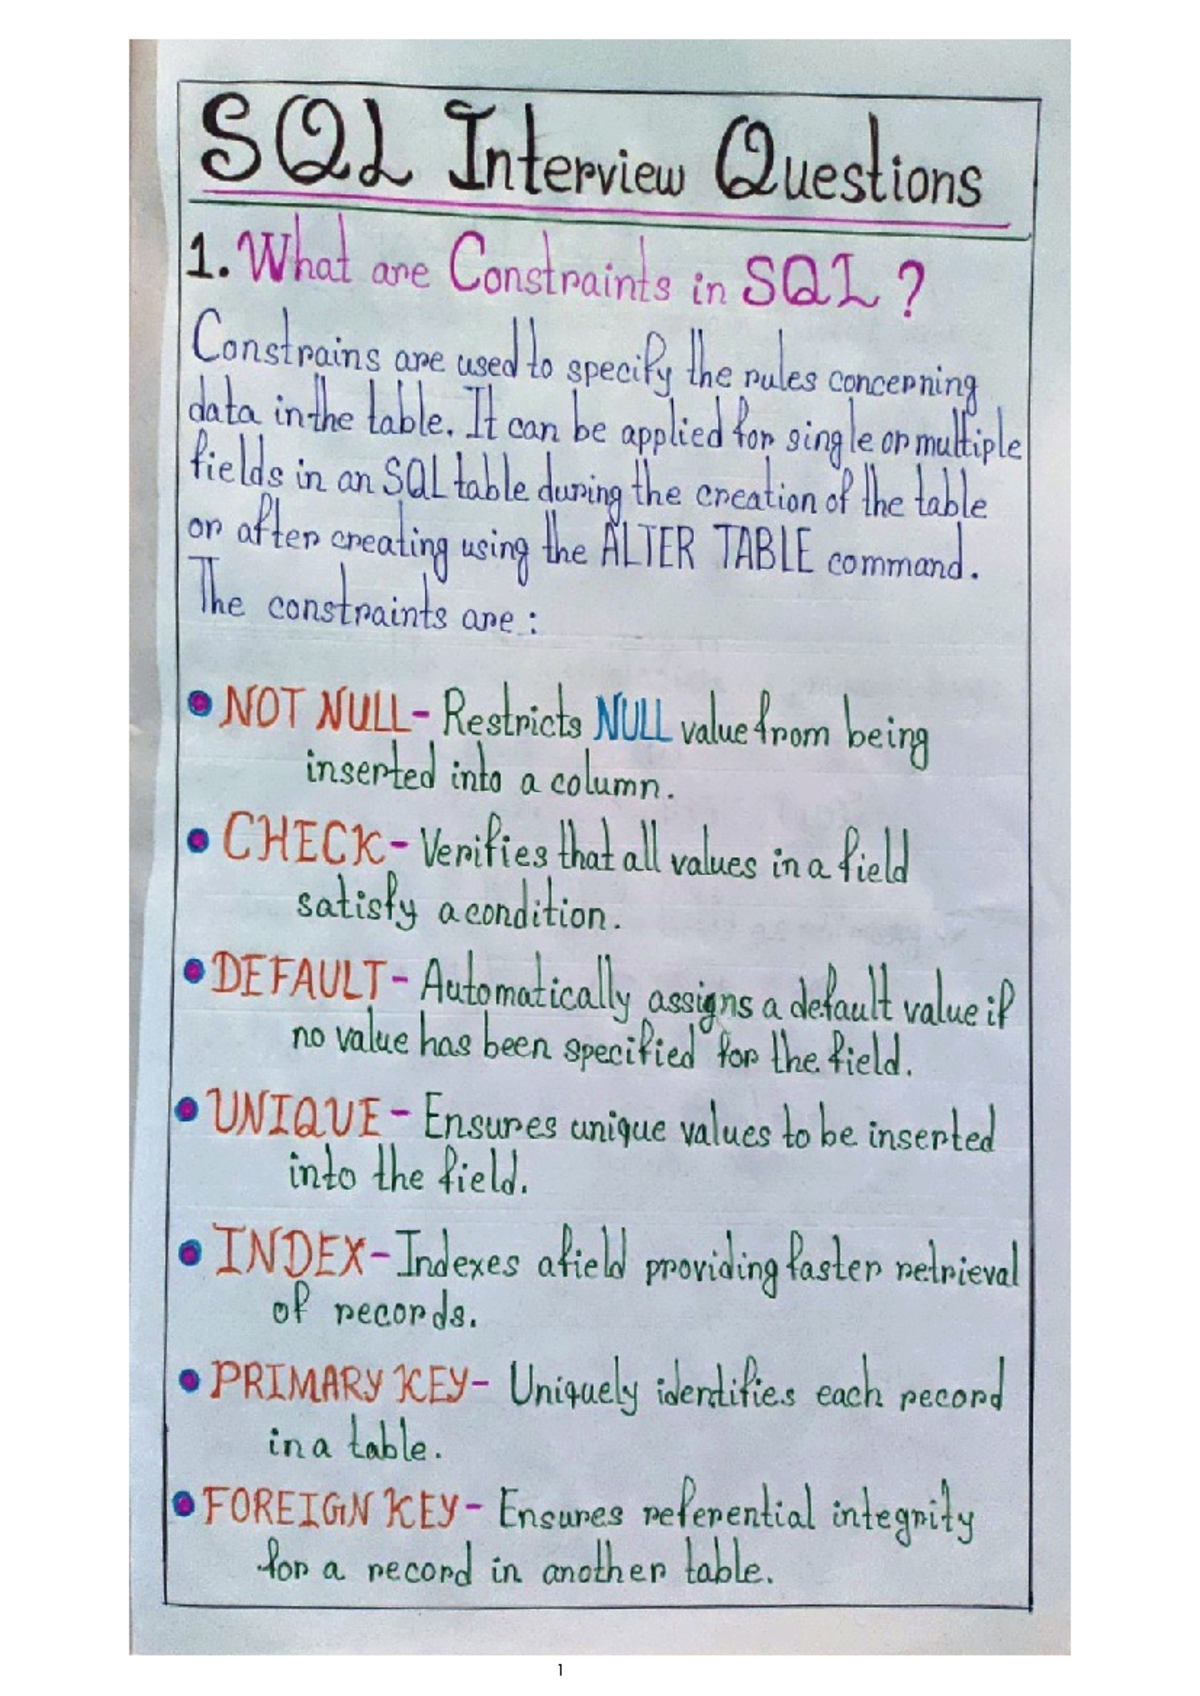 SQL Interview Questions
1. What are Constraints in SQL ?
Constrains are used to specify the rules concerning
data in the table. It can be applied for single or multiple
fields in an SQL table during the creation of the table
or after creating using the ALTER TABLE command.
The constraints are :
NOT NULL - Restricts NULL value from being
inserted into a column.
CHECK - Verifies that all values in a field
satisfy a condition.
DEFAULT - Automatically assigns a default value if
no value has been specified for the field.
UNIQUE - Ensures unique values to be inserted
into the field.
INDEX - Indexes a field providing faster retrieval
of records.
PRIMARY KEY - Uniquely identifies each record
in a table.
FOREIGN KEY - Ensures referential integrity
for a record in another table.
1